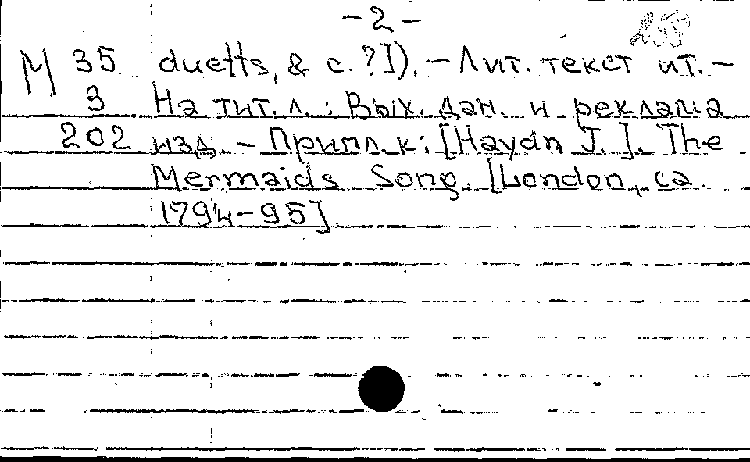 -2-
М 35 duetts, & c. ?]). - Лит. текст ит. -
3 На тит. л.: Вых. дан. и реклама
202 изд. - Припл. к: [Haydn J.]. The
Mermaids Song. [London, ca.
1794-95]